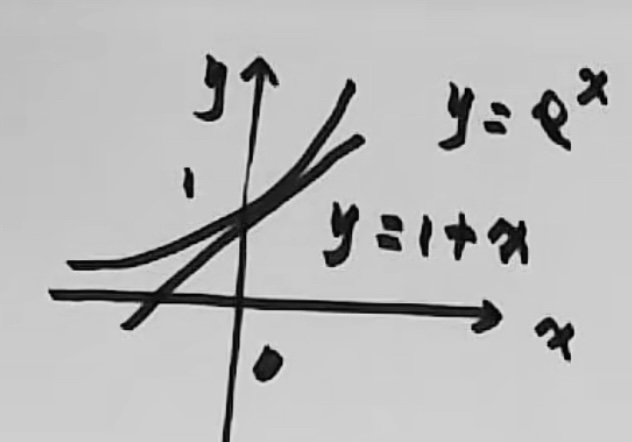 y
y = e^x
1
y = 1 + x
x
0